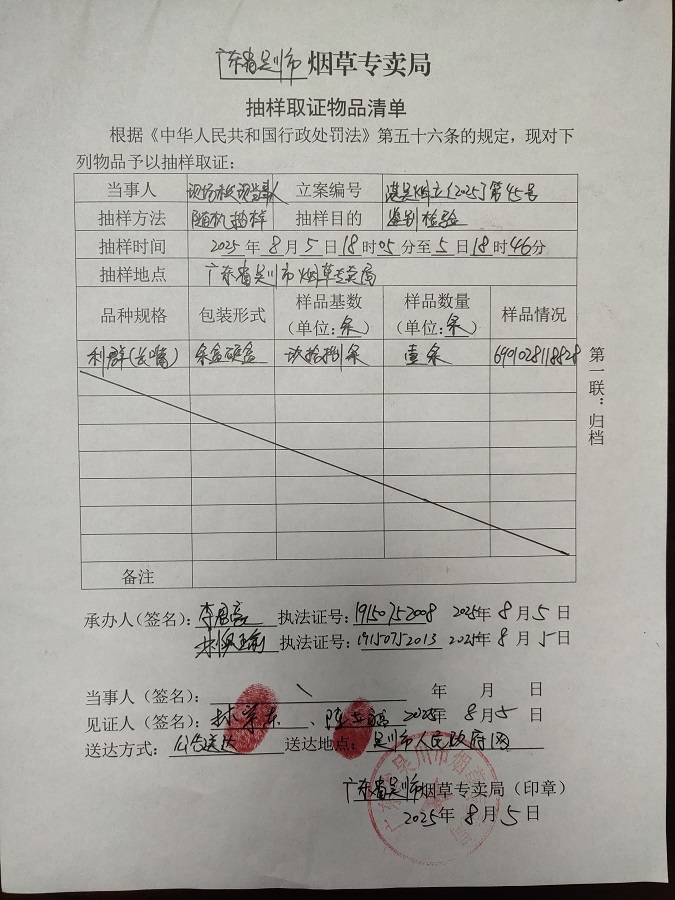 广东省吴川市烟草专卖局
抽样取证物品清单
根据《中华人民共和国行政处罚法》第五十六条的规定，现对下
列物品予以抽样取证：
当事人 现场未发现当事人 立案编号 湛吴烟立〔2025〕第45号
抽样方法 随机抽样 抽样目的 鉴别检验
抽样时间 2025年8月5日18时05分至5日18时46分
抽样地点 广东省吴川市烟草专卖局
品种规格 包装形式 样品基数（单位：条） 样品数量（单位：条） 样品情况
利群(长嘴) 条盒硬盒 玖拾捌条 壹条 6901028118828
备注
第一联：归档
承办人（签名）： 执法证号：19150752008 2025年8月5日
执法证号：19150752013 2025年8月5日
当事人（签名）： 年 月 日
见证人（签名）： 、 2025年8月5日
送达方式：公告送达 送达地点：吴川市人民政府网
广东省吴川市烟草专卖局（印章）
2025年8月5日